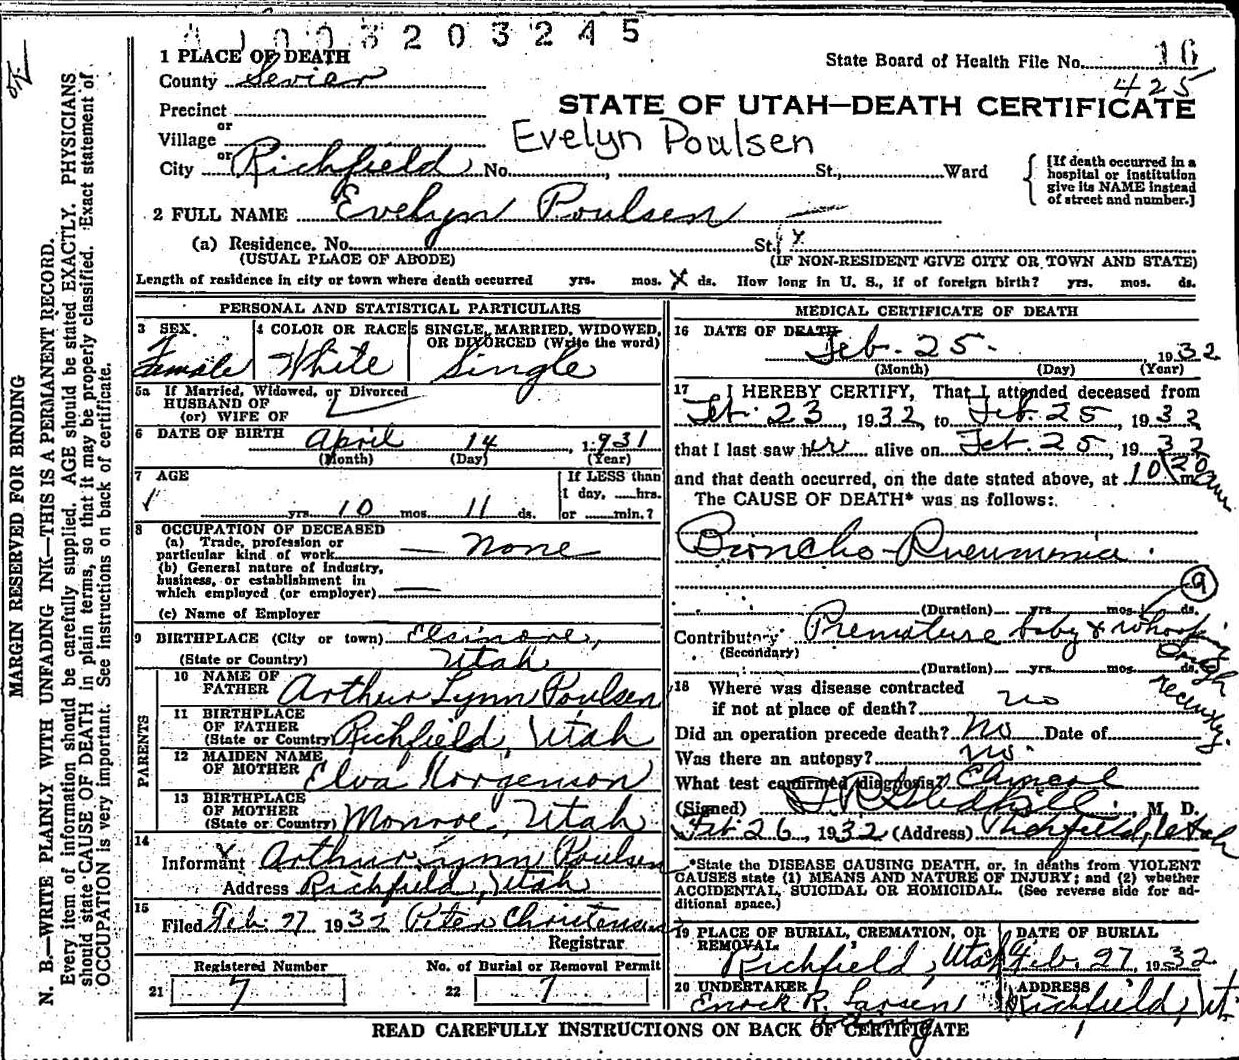 A 1003203245
1 PLACE OF DEATH
State Board of Health File No. 16
County Sevier
425
Precinct
STATE OF UTAH—DEATH CERTIFICATE
or
Village
Evelyn Poulsen
or
City Richfield No. St., Ward
{ [If death occurred in a
hospital or institution
give its NAME instead
of street and number.]
2 FULL NAME Evelyn Poulsen
(a) Residence. No. St.
(USUAL PLACE OF ABODE)
(IF NON-RESIDENT GIVE CITY OR TOWN AND STATE)
Length of residence in city or town where death occurred yrs. mos. X ds. How long in U. S., if of foreign birth? yrs. mos. ds.
PERSONAL AND STATISTICAL PARTICULARS
3 SEX. 4 COLOR OR RACE 5 SINGLE, MARRIED, WIDOWED,
OR DIVORCED (Write the word)
Female White Single
5a If Married, Widowed, or Divorced
HUSBAND OF
(or) WIFE OF
6 DATE OF BIRTH April 14, 1931
(Month) (Day) (Year)
7 AGE
If LESS than
1 day, hrs.
yrs. 10 mos. 11 ds. or min.?
8 OCCUPATION OF DECEASED
(a) Trade, profession or
particular kind of work — None
(b) General nature of Industry,
business, or establishment in
which employed (or employer)
(c) Name of Employer
9 BIRTHPLACE (City or town) Elsinore,
(State or Country) Utah
PARENTS
10 NAME OF
FATHER Arthur Lynn Poulsen
11 BIRTHPLACE
OF FATHER
(State or Country) Richfield, Utah
12 MAIDEN NAME
OF MOTHER Elva Horgenson
13 BIRTHPLACE
OF MOTHER
(State or Country) Monroe, Utah
14
Informant Arthur Lynn Poulsen
Address Richfield, Utah
15
Filed Feb. 27 1932 Peter Christensen
Registrar
Registered Number No. of Burial or Removal Permit
21 7 22 7
MEDICAL CERTIFICATE OF DEATH
16 DATE OF DEATH
Feb. 25. , 1932
(Month) (Day) (Year)
17 I HEREBY CERTIFY, That I attended deceased from
Feb. 23, 1932, to Feb. 25, 1932
that I last saw her alive on Feb. 25, 1932
and that death occurred, on the date stated above, at 10:20 am
The CAUSE OF DEATH* was as follows:
Broncho-Pneumonia.
9
(Duration) yrs. mos. ds.
Contributory Premature baby & Whooping
Cough
recently.
(Secondary)
(Duration) yrs. mos. ds.
18 Where was disease contracted
if not at place of death? no
Did an operation precede death? No Date of
Was there an autopsy? no.
What test confirmed diagnosis? Clinical
(Signed) M. D.
Feb. 26, 1932 (Address) Richfield, Utah
*State the DISEASE CAUSING DEATH, or, in deaths from VIOLENT
CAUSES state (1) MEANS AND NATURE OF INJURY; and (2) whether
ACCIDENTAL, SUICIDAL OR HOMICIDAL. (See reverse side for ad-
ditional space.)
19 PLACE OF BURIAL, CREMATION, OR
REMOVAL
Richfield, Utah
DATE OF BURIAL
Feb. 27, 1932
20 UNDERTAKER
Enock R. Larsen
ADDRESS
Richfield, Ut.
READ CAREFULLY INSTRUCTIONS ON BACK OF CERTIFICATE
MARGIN RESERVED FOR BINDING
N. B.—WRITE PLAINLY, WITH UNFADING INK—THIS IS A PERMANENT RECORD.
Every item of information should be carefully supplied. AGE should be stated EXACTLY. PHYSICIANS
should state CAUSE OF DEATH in plain terms, so that it may be properly classified. Exact statement of
OCCUPATION is very important. See instructions on back of certificate.